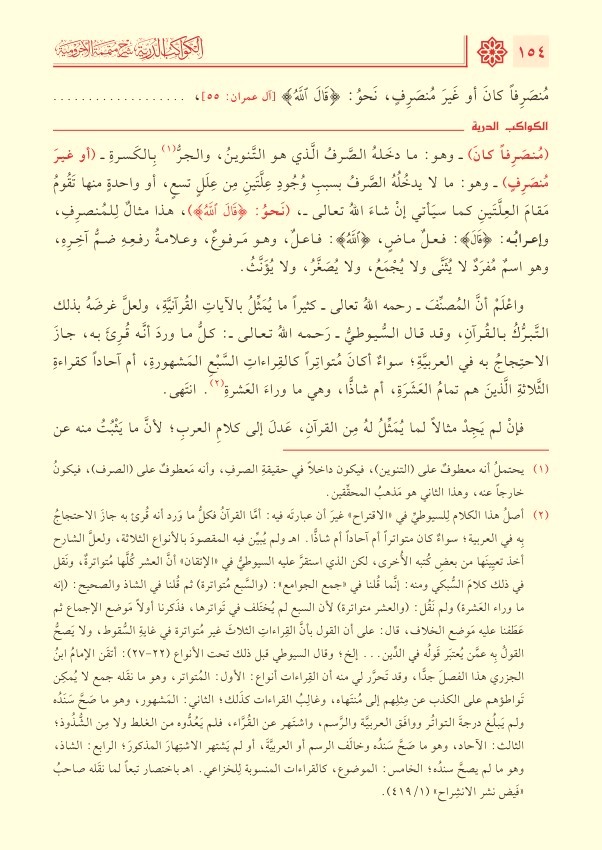 ١٥٤
الكواكب الدرية شرح متممة الآجرومية
مُنصَرِفاً كانَ أو غَيرَ مُنصَرِفٍ، نَحوُ: ﴿قَالَ ٱللَّهُ﴾ [آل عمران: ٥٥]، ...................
الكواكب الدرية
(مُنصَرِفاً كانَ) ـ وهو: ما دخَلهُ الصَّرفُ الَّذي هو التَّنوينُ، والجرُّ(١) بِالكَسرةِ ـ (أو غيرَ
مُنصَرِفٍ) ـ وهو: ما لا يدخُلُهُ الصَّرفُ بسببِ وُجُودِ عِلَّتَينِ مِن عِلَلٍ تسعٍ، أو واحدةٍ منها تَقُومُ
مَقامَ العِلَّتَينِ كما سيَأتي إنْ شاءَ اللهُ تعالى ـ، (نَحوُ: ﴿قَالَ ٱللَّهُ﴾)، هذا مثالٌ لِلمُنصرِفِ،
وإعرابُه: ﴿قَالَ﴾: فعلٌ ماضٍ، ﴿ٱللَّهُ﴾: فاعلٌ، وهو مَرفوعٌ، وعلامةُ رفعِهِ ضمُّ آخِرِهِ،
وهو اسمٌ مُفرَدٌ لا يُثَنَّى ولا يُجْمَعُ، ولا يُصَغَّرُ، ولا يُؤَنَّثُ.
واعْلَمْ أنَّ المُصنِّفَ ـ رحمه اللهُ تعالى ـ كثيراً ما يُمَثِّلُ بالآياتِ القُرآنيَّةِ، ولعلَّ غرضَهُ بذلك
التَّبرُّكُ بـالـقُـرآنِ، وقـد قـال السُّـيـوطيُّ ـ رَحـمـه اللهُ تـعـالـى ـ: كـلُّ ما وردَ أنَّـه قُـرِئَ بـه، جـازَ
الاحتِجاجُ به في العربيَّةِ؛ سواءٌ أكانَ مُتواتِراً كالقِراءاتِ السَّبْعِ المَشهورةِ، أم آحاداً كقراءةِ
الثَّلاثةِ الَّذينَ هم تمامُ العَشَرَةِ، أم شاذًّا، وهي ما وراءَ العَشرةِ(٢). انتَهى.
فإنْ لم يَجِدْ مثالاً لما يُمَثِّلُ لهُ مِن القرآنِ، عَدلَ إلى كلامِ العربِ؛ لأنَّ ما يَثْبُتُ منه عن
(١) يحتملُ أنه معطوفٌ على (التنوين)، فيكون داخلاً في حقيقةِ الصرفِ، وأنه مَعطوفٌ على (الصرف)، فيكونُ
خارجاً عنه، وهذا الثاني هو مَذهبُ المحقِّقين.
(٢) أصلُ هذا الكلامِ لِلسيوطيِّ في «الاقتراح» غيرَ أن عبارتَه فيه: أمَّا القرآنُ فكلُّ ما وَرد أنه قُرئ به جازَ الاحتجاجُ
بِه في العربية؛ سواءٌ كان متواتراً أم آحاداً أم شاذًّا. اهـ ولم يُبيِّن فيه المقصودَ بالأنواع الثلاثة، ولعلَّ الشارح
أخذ تعيينَها من بعضِ كُتبه الأُخرى، لكن الذي استقرَّ عليه السيوطيُّ في «الإتقان» أنَّ العشر كُلَّها مُتواترةٌ، ونَقل
في ذلك كلامَ السُّبكي ومنه: إنَّما قُلنا في «جمع الجوامع»: (والسَّبع مُتواترة) ثم قُلنا في الشاذ والصحيح: (إنه
ما وراء العَشرة) ولم نَقُل: (والعشر متواترة) لأن السبع لم يُختَلف في تَواترها، فذَكرنا أولاً مَوضع الإجماع ثم
عَطَفنا عليه مَوضع الخلاف، قال: على أن القول بأنَّ القِراءاتِ الثلاثَ غيرُ مُتواترة في غايةِ السُّقوط، ولا يَصحُّ
القولُ بِه عمَّن يُعتبَر قَولُه في الدِّين... إلخ؛ وقال السيوطي قبل ذلك تحت الأنواع (٢٢-٢٧): أتقَن الإمامُ ابنُ
الجزري هذا الفصلَ جدًّا، وقد تَحرَّر لي منه أن القِراءات أنواع: الأول: المُتواتر، وهو ما نقَله جمع لا يُمكِن
تَواطؤهم على الكذب عن مِثلِهم إلى مُنتَهاه، وغالِبُ القراءات كذَلك؛ الثاني: المَشهور، وهو ما صَحَّ سَنَدُه
ولم يَبلُغ درجةَ التواتُر ووافَق العربيَّة والرَّسم، واشتَهر عن القُرَّاء، فلم يَعُدُّوه من الغلط ولا مِن الشُّذوذ؛
الثالث: الآحاد، وهو ما صَحَّ سَندُه وخالَف الرسم أو العربيَّة، أو لم يَشتهر الاشتِهارَ المذكورَ؛ الرابع: الشاذ،
وهو ما لم يصحَّ سندُه؛ الخامس: الموضوع، كالقراءات المنسوبة لِلخزاعي. اهـ باختصار تبعاً لما نقَله صاحبُ
«فَيض نشر الانشِراح» (١/ ٤١٩).